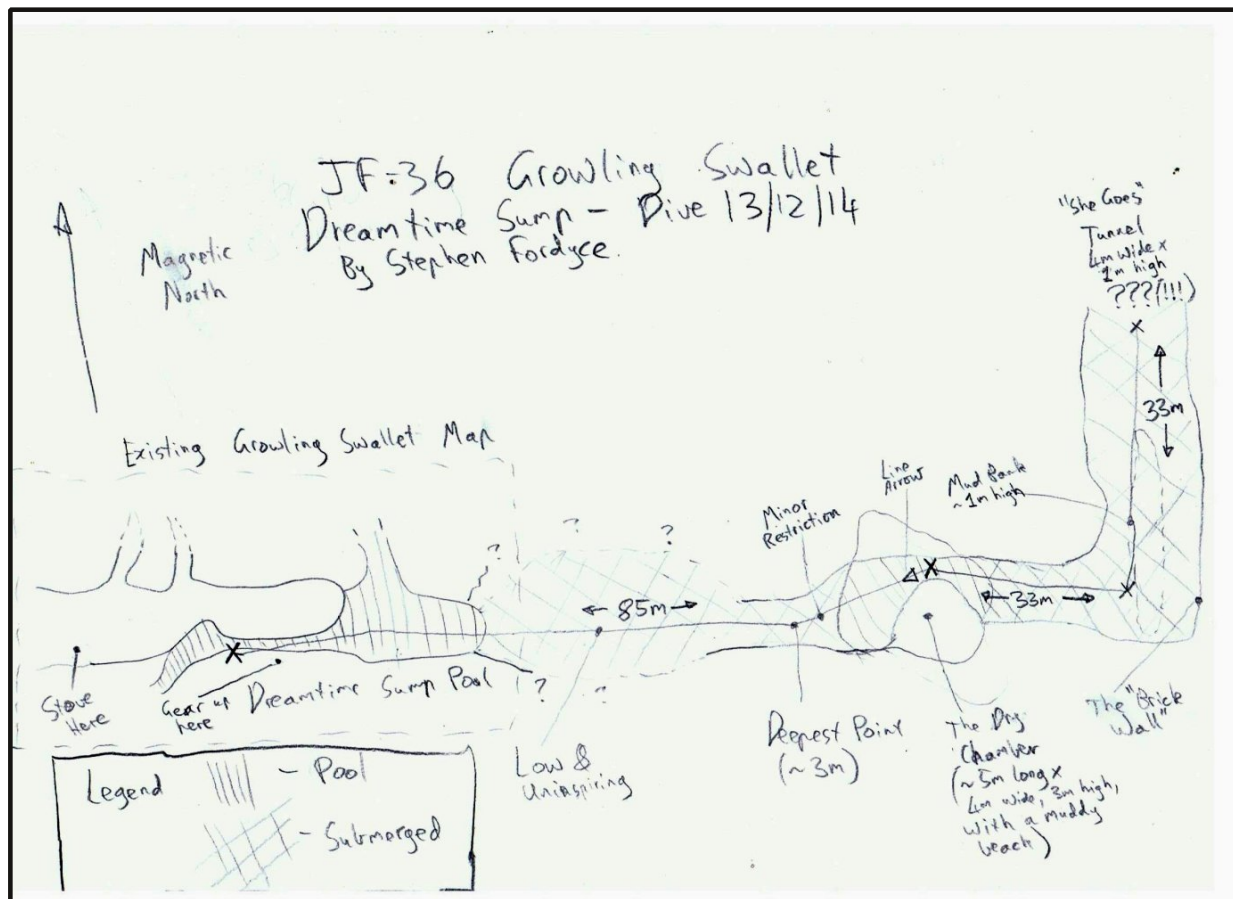 JF-36 Growling Swallet
Dreamtime Sump - Dive 13/12/14
By Stephen Fordyce.
Magnetic
North
"She Goes"
Tunnel
4m wide x
1m high
???(!!!)
33m
Existing Growling Swallet Map
Line
Arrow
Mud Bank
~1m high
Minor
Restriction
?
?
?
85m
33m
?
?
Stove
Here
Gear up
here
Dreamtime Sump Pool
Low &
Uninspiring
Deepest Point
(~3m)
The Dry
Chamber
(~5m long x
4m wide, 3m high,
with a muddy
beach)
The "Brick
Wall"
Legend
- Pool
- Submerged